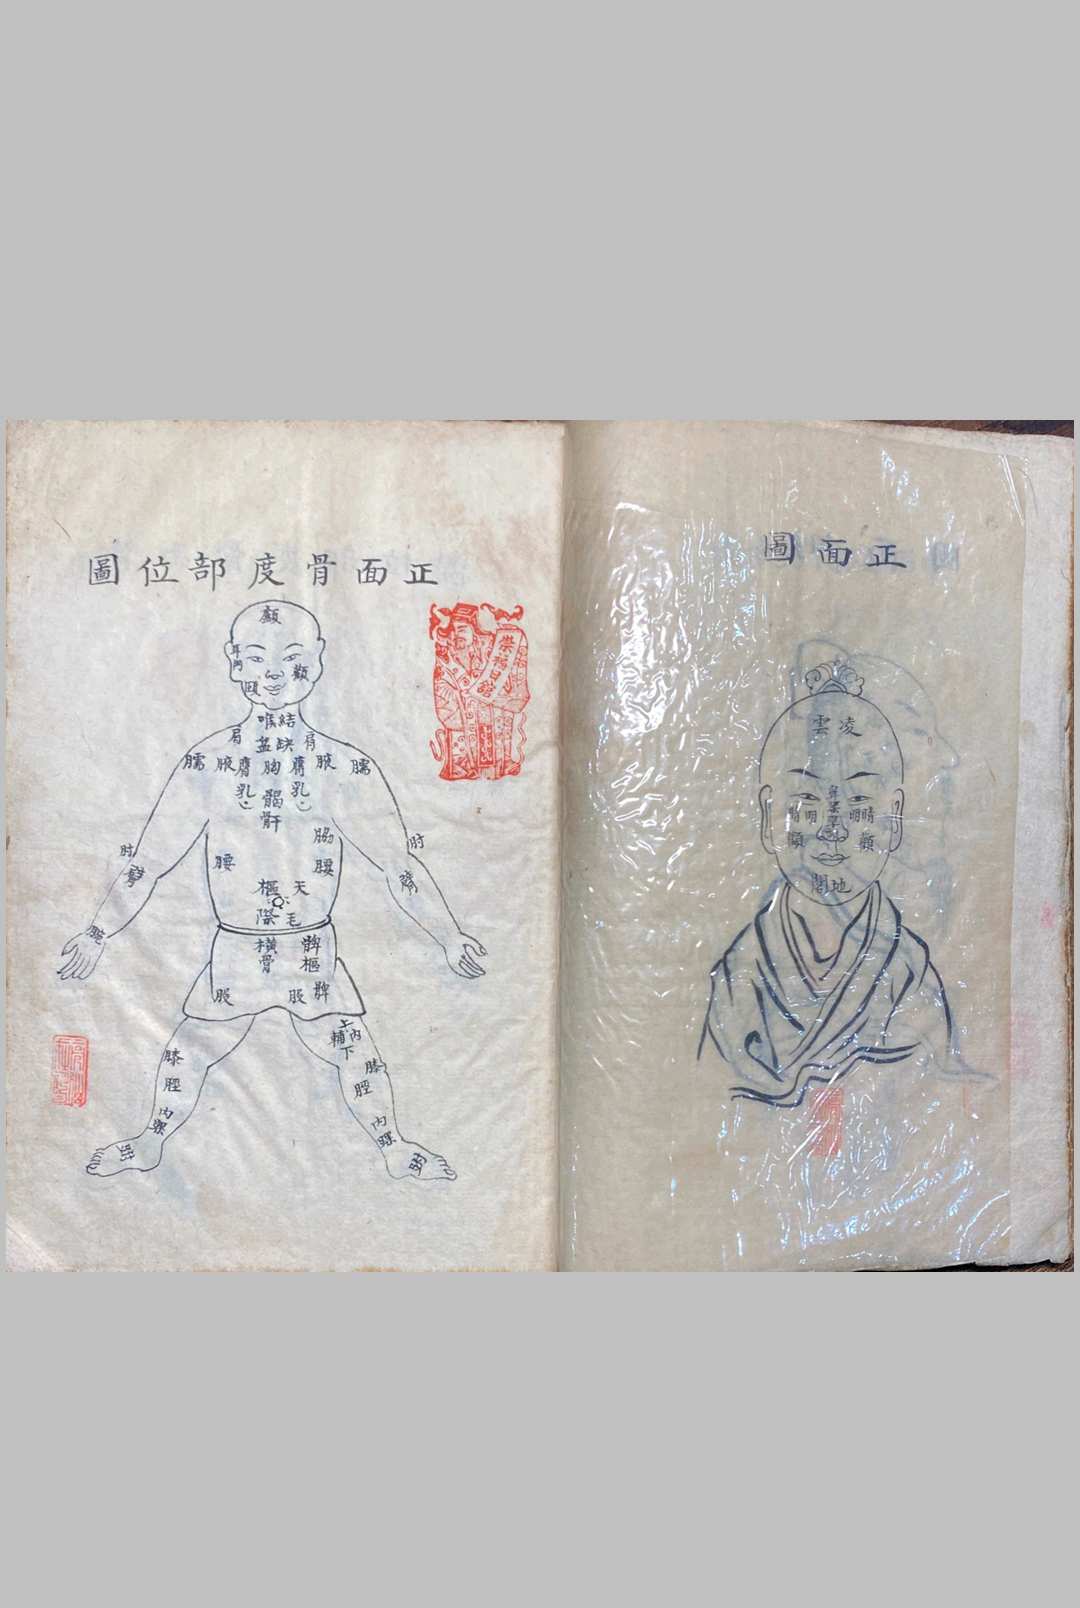 正面圖
凌雲
鼻梁
睛明
睛明
顴
顴
地閣
正面骨度部位圖
顱
耳門
顴
頤
結喉
肩
肩
缺盆
臑
腋
膺
胸
膺
腋
臑
乳
乳
𩩲骬
脇
肘
肘
臂
臂
腰
腰
天樞
毛際
腕
橫骨
髀樞
股
股
髀
上內輔下
膝
膝
脛
脛
內踝
內踝
跗
跗